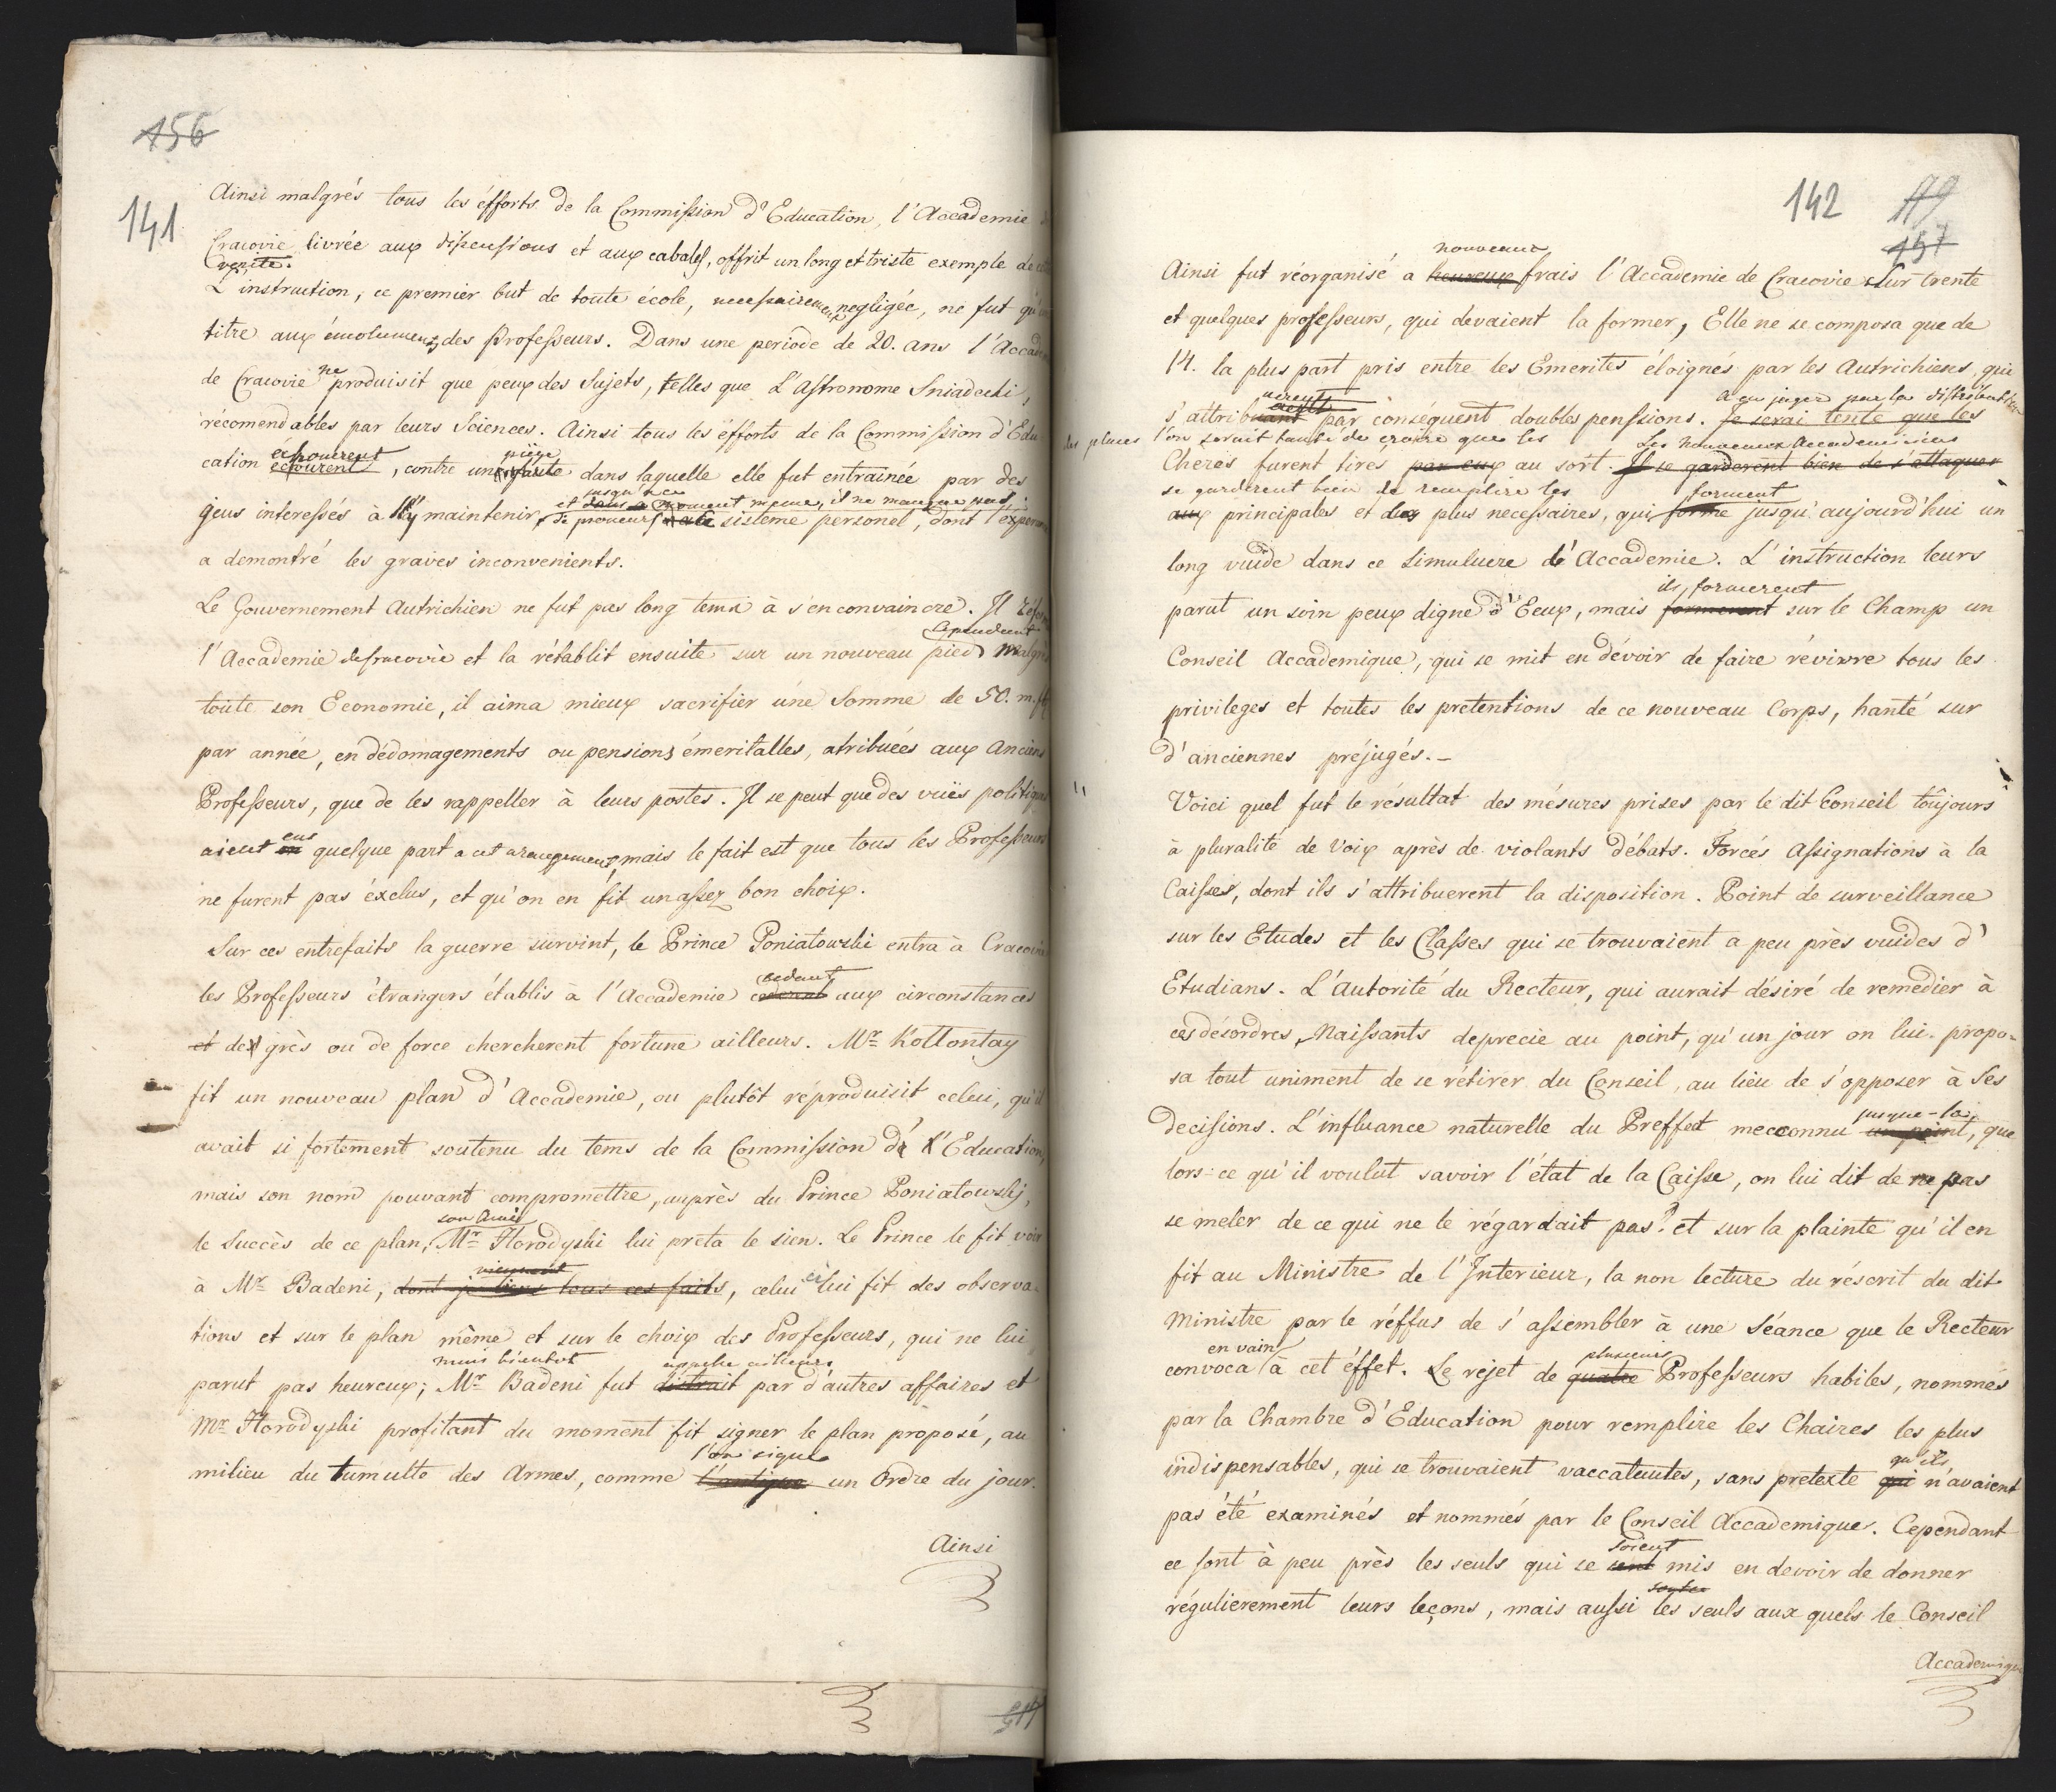 156
141
Ainsi malgrés tous les éfforts de la Commission d'Education, l'Accademie
Cracovie livrée aux dissensions et aux cabales, offrit un long et triste exemple de
verité.
L'instruction, ce premier but de toute école, necessairement negligée, ne fut qu'un
titre aux émolumens des Professeurs. Dans une periode de 20. ans l'Accad
ne
de Cracovie produisit que peux des Sujets, telles que L'Astronome Sniadecki,
récomendables par leurs Sciences. Ainsi tous les éfforts de la Commission d'Edu
échouerent piège
cation échourent, contre un dans laquelle elle fut entrainée par des
et jusqu'à ce moment même, il ne manque pas
gens interessés à l'y maintenir, de proneurs sisteme personel, dont l'experien
a demontré les graves inconvenients.
Le Gouvernement Autrichien ne fut pas long tems à s'en convaincre. Il réforma
Cependant
l'Accademie de Cracovie et la rétablit ensuite sur un nouveau pied malgré
toute son Economie, il aima mieux sacrifier une Somme de 50. m. fl
par année, en dédomagements ou pensions émeritalles, atribuées aux Anciens
Professeurs, que de les rappeller à leurs postes. Il se peut que des vuës politiques
eus
aient quelque part a cet arangement, mais le fait est que tous les Professeurs
ne furent pas éxclus, et qu'on en fit un assez bon choix.
Sur ces entrefaits la guerre survint, le Prince Poniatowski entra à Cracovie
cedant
les Professeurs étrangers établis à l'Accademie cederent aux circonstances
et de grès ou de force chercherent fortune ailleurs. Mr Kollontay
fit un nouveau plan d'Accademie, ou plutôt réproduisit celui, qu'il
avait si fortement soutenu du tems de la Commission d'Education,
mais son nom pouvant compromettre, auprès du Prince Poniatowskj,
son Ami
le Succès de ce plan, Mr Horodyski lui preta le sien. Le Prince le fit voir
viennent
à Mr Badeni, dont je tiens tous ces faits, celui ci lui fit des observa-
tions et sur le plan même et sur le choix des Professeurs, qui ne lui
mais bientot appelé ailleurs
parut pas heureux; Mr Badeni fut distrait par d'autres affaires et
Mr Horodyski profitant du moment fit signer le plan proposé, au
l'on signe
milieu du tumulte des Armes, comme un Ordre du jour.
Ainsi
142 179
157
nouveaux
Ainsi fut réorganisé a heureux frais l'Accademie de Cracovie Sur trente
et quelques professeurs, qui devaient la former, Elle ne se composa que de
14. la plus part pris entre les Emerites éloignés par les Autrichiens, qui
uerent a en juger par la distribution
s'attribuant par conséquent doubles penssions. Je serai tenté que les
des places l'on serait tenté de croire que les Les nouveaux Accademiciens
Cheres furent tirés par eux au sort. Il se garderent bien de s'attaquer
se garderent bien de remplire les forment
aux principales et des plus necessaires, qui forme jusqu'aujourd'hui un
long vuide dans ce Simulucre d'Accademie. L'instruction leurs
ils formerent
parut un soin peux digne d'Eeux, mais formerent sur le Champ un
Conseil Accademique, qui se mit en dévoir de faire révivre tous les
privileges et toutes les prétentions de ce nouveau Corps, hanté sur
d'anciennes préjugés.-
" Voici quel fut le résultat des mésures prises par le dit Conseil toûjours
à pluralité de Voix après de violants débats. Forcés Assignations à la
Caisse, dont ils s'attribuerent la disposition. Point de surveillance
sur les Etudes et les Classes qui se trouvaient a peu près vuides d'
Etudians. L'Autorité du Recteur, qui aurait désiré de remedier à
ces désordres, Naissants deprecie au point, qu'un jour on lui propo-
sa tout uniment de se rétirer du Conseil, au lieu de s'opposer à Ses
jusque-la
decisions. L'influance naturelle du Preffet mecconnu un point, que
lors-ce qu'il voulut savoir l'état de la Caisse, on lui dit de ne pas
se meler de ce qui ne le régardait pas? et sur la plainte qu'il en
fit au Ministre de l'Interieur, la non lecture du réscrit du dit
Ministre par le réffus de s'assembler à une Séance que le Recteur
en vain plusieurs
convoca à cet éffet. Le rejet de quatre Professeurs habiles, nommés
par la Chambre d'Education pour remplire les Chaires les plus
qu'ils
indispensables, qui se trouvaient vaccatentes, sans pretexte qui n'avaient
pas été examinés et nommés par le Conseil Accademique. Cependant
soient
ce sont à peu près les seuls qui se sont mis en devoir de donner
régulierement leurs leçons, mais aussi les seuls aux quels le Conseil
Accademique